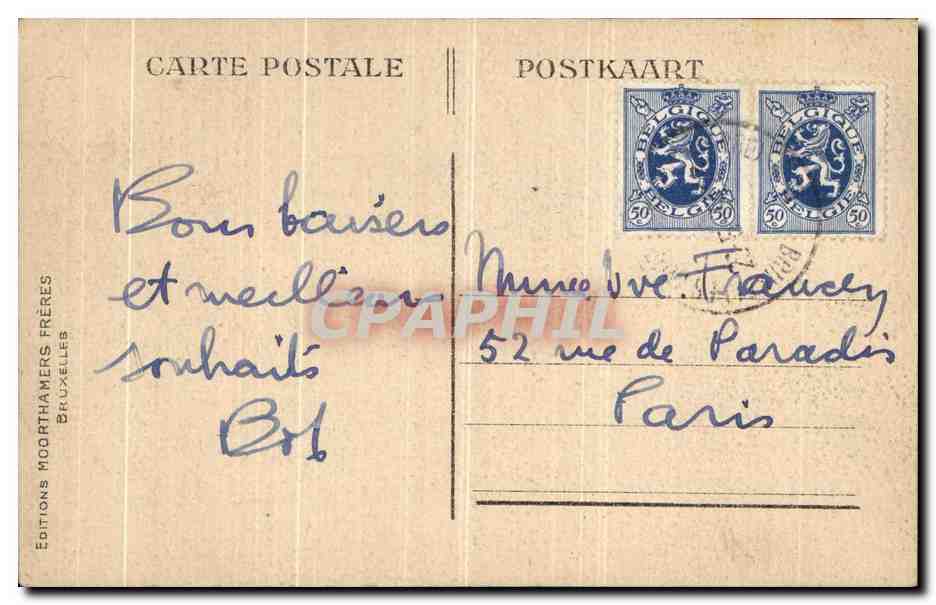 CARTE POSTALE
POSTKAART
BELGIQUE
BELGIE
50 c 50 c
BELGIQUE
BELGIE
50 c 50 c
Bons baisers
et meilleurs
souhaits
Bob
Mme Vve Francey
52 rue de Paradis
Paris
EDITIONS MOORTHAMERS FRÈRES
BRUXELLES
CPAPHIL